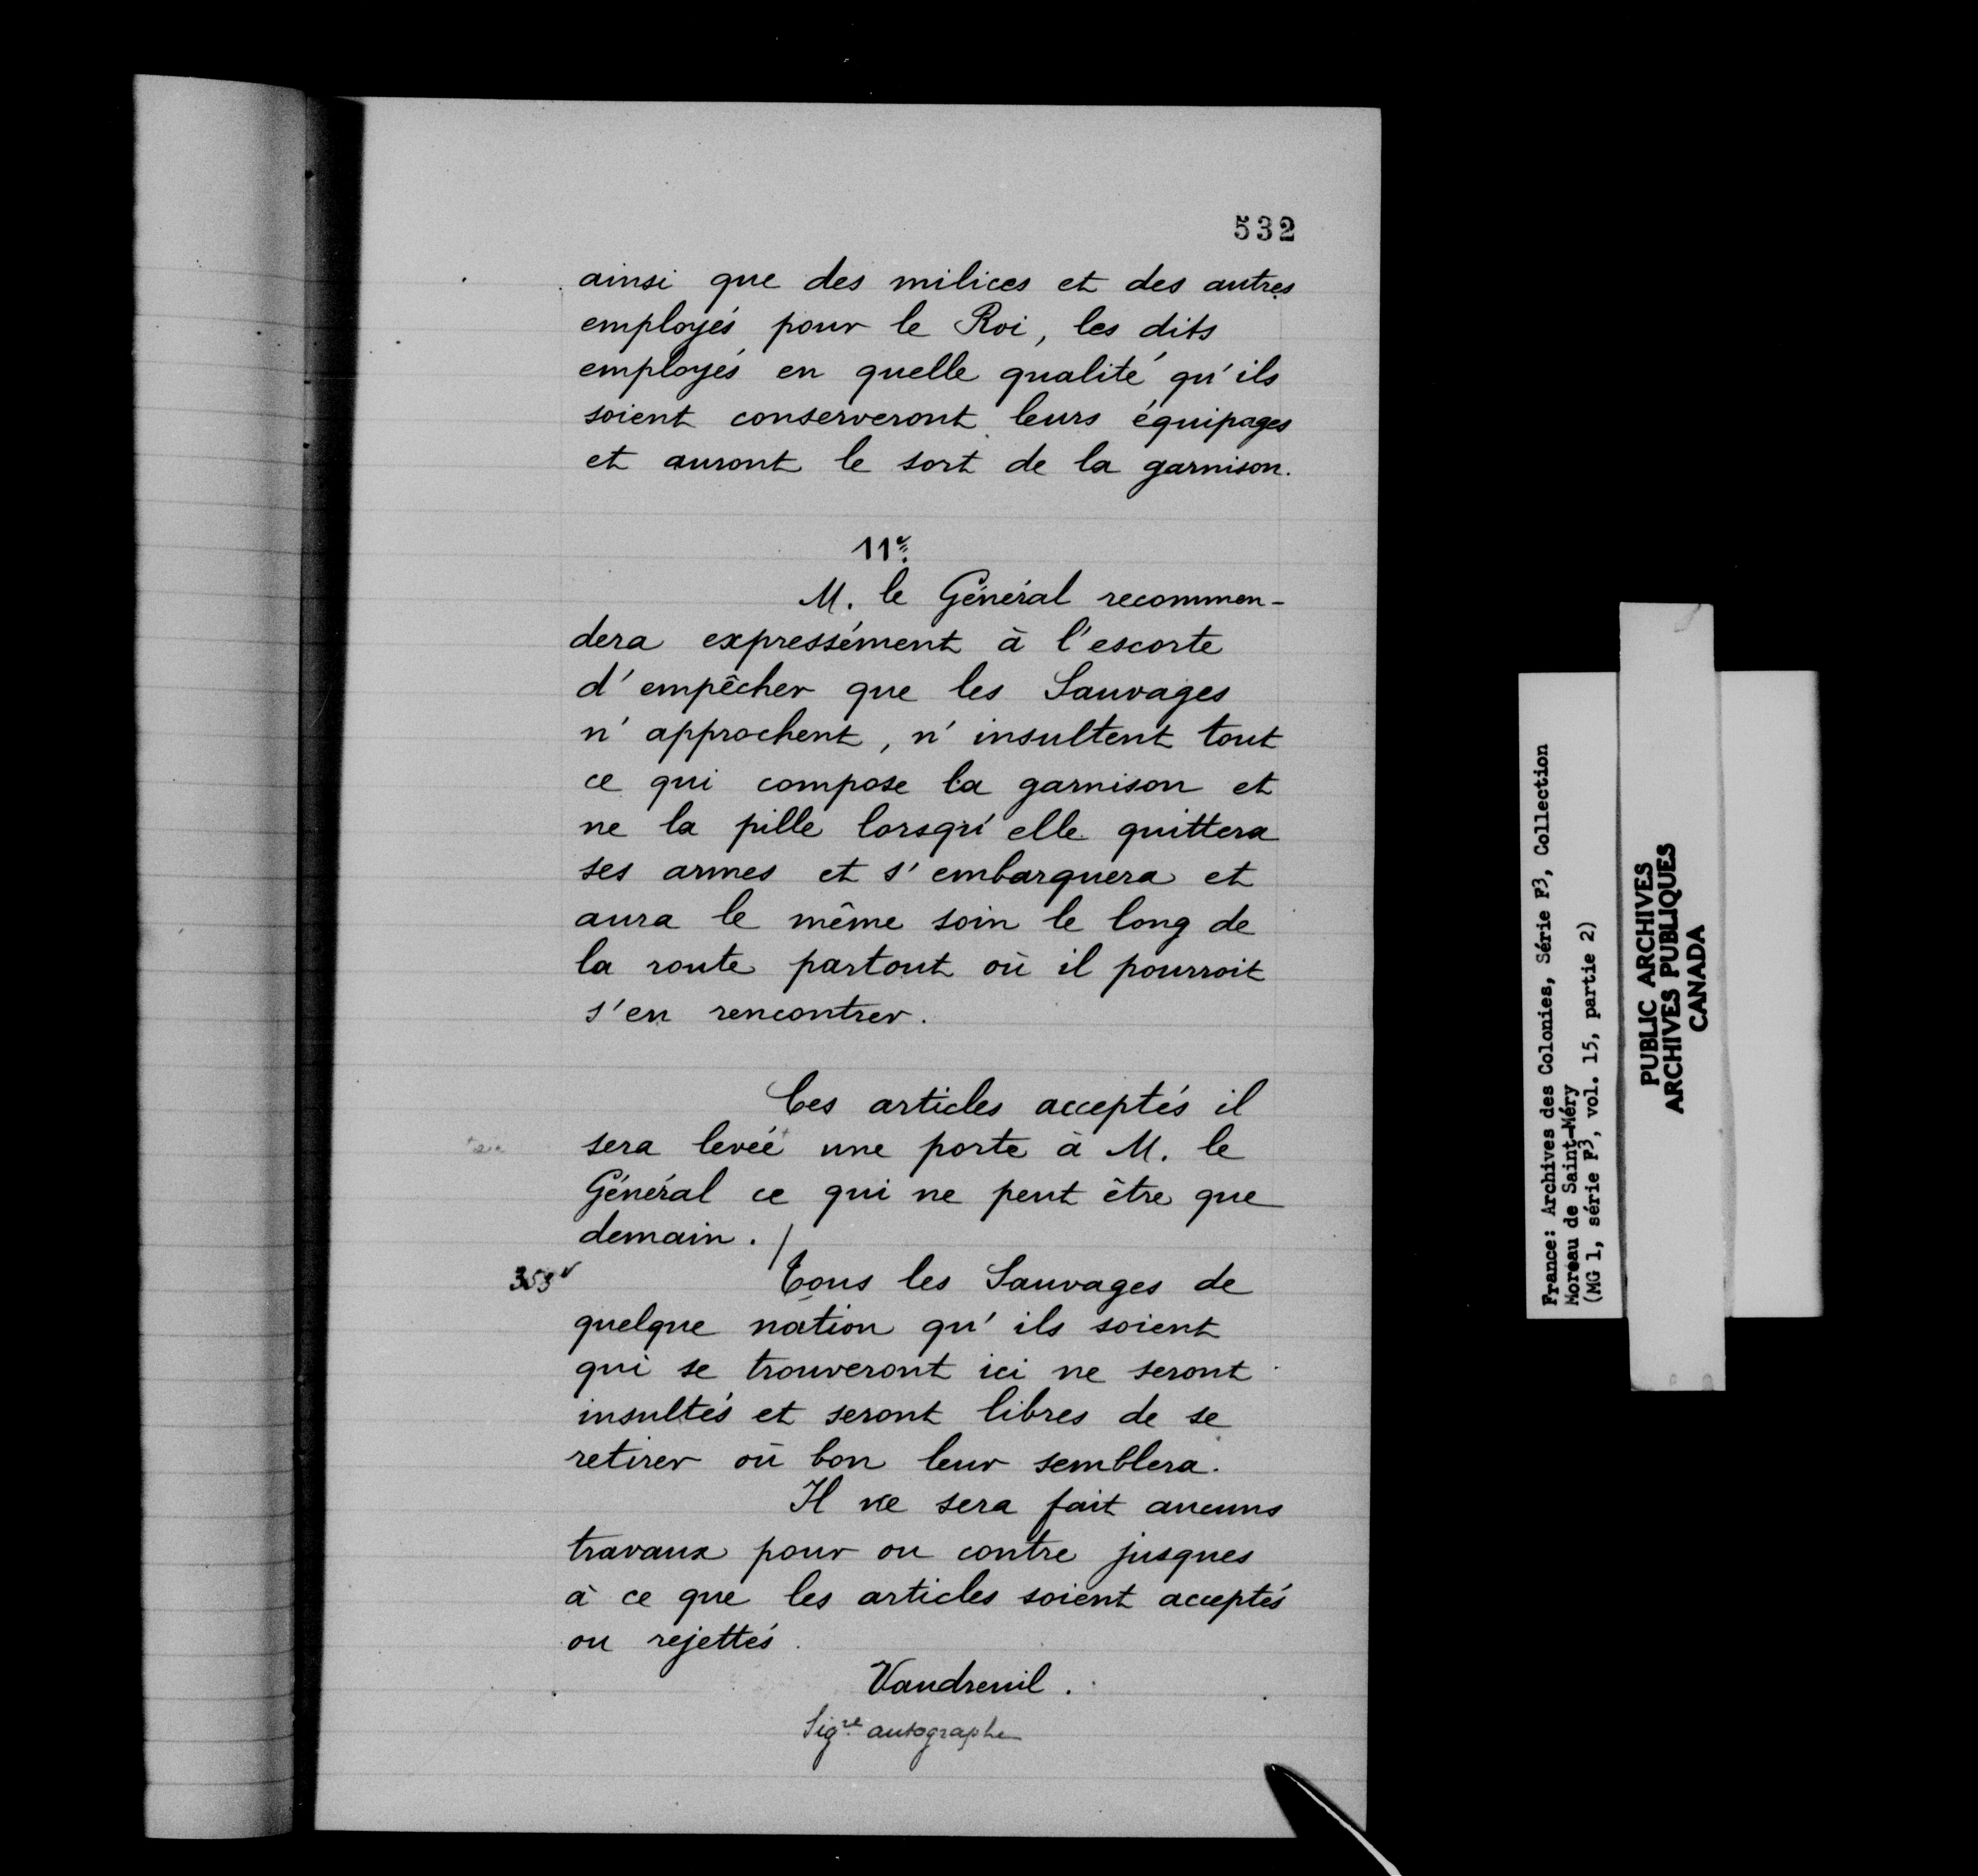 532
ainsi que des milices et des autres
employés pour le Roi, les dits
employés en quelle qualité qu'ils
soient conserveront leurs équipages
et auront le sort de la garnison.
11e.
M. le Général recommen-
dera expressément à l'escorte
d'empêcher que les Sauvages
n'approchent, n'insultent tout
ce qui compose la garnison et
ne la pille lorsqu'elle quittera
ses armes et s'embarquera et
aura le même soin le long de
la route partout où il pourroit
s'en rencontrer.
Ces articles acceptés il
sera levée+ une porte à M. le
Général ce qui ne peut être que
demain. /
353v
Tous les Sauvages de
quelque nation qu'ils soient
qui se trouveront ici ne seront
insultés et seront libres de se
retirer où bon leur semblera.
Il ne sera fait aucuns
travaux pour ou contre jusques
à ce que les articles soient acceptés
ou rejettés.
Vaudreuil.
Sigre autographe
France: Archives des Colonies, Série F3, Collection
Moreau de Saint-Méry
(MG 1, série F3, vol. 15, partie 2)
PUBLIC ARCHIVES
ARCHIVES PUBLIQUES
CANADA